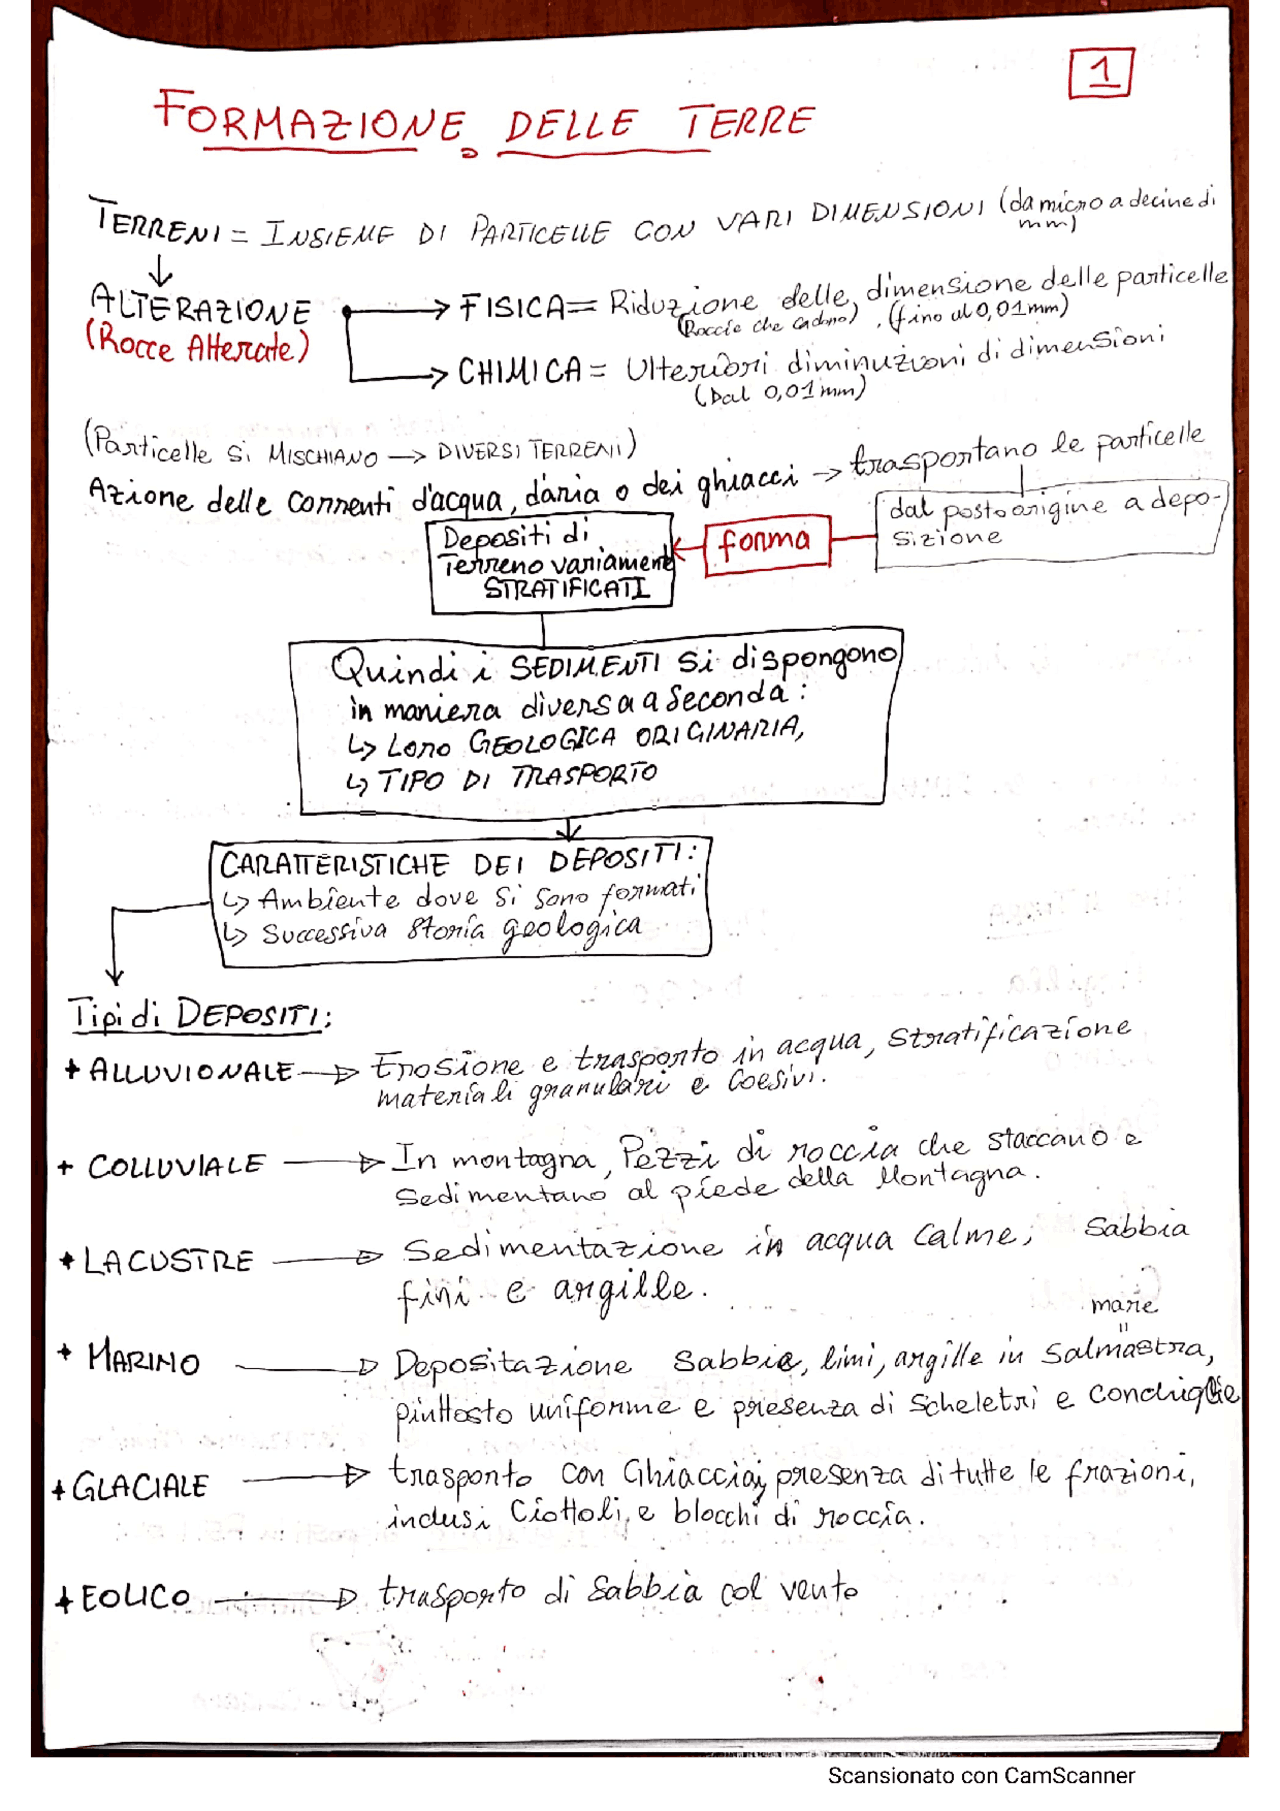 1
FORMAZIONE DELLE TERRE
TERRENI = INSIEME DI PARTICELLE CON VARI DIMENSIONI (da micro a decine di mm)
ALTERAZIONE
(Rocce Alterate)
FISICA = Riduzione delle dimensione delle particelle
(Roccie che cadono), (fino al 0,01mm)
CHIMICA = Ulteriori diminuzioni di dimensioni
(Dal 0,01mm)
(Particelle Si MISCHIANO → DIVERSI TERRENI)
Azione delle correnti d'acqua, d'aria o dei ghiacci → trasportano le particelle
dal posto origine a depo-
sizione
forma
Depositi di
Terreno variament
STRATIFICATI
Quindi i SEDIMENTI Si dispongono
in maniera diversa a Seconda:
↳ Loro GEOLOGICA ORIGINARIA,
↳ TIPO DI TRASPORTO
CARATTERISTICHE DEI DEPOSITI:
↳ Ambiente dove Si Sono formati
↳ Successiva Storia geologica
Tipi di DEPOSITI:
+ ALLUVIONALE → Erosione e trasporto in acqua, Stratificazione
materiali granulari e Coesivi.
+ COLLUVIALE → In montagna, Pezzi di roccia che staccano e
Sedimentano al piede della Montagna.
+ LACUSTRE → Sedimentazione in acqua Calme, Sabbia
fini e argille.
mare
"
+ MARINO → Depositazione Sabbie, limi, argille in Salmastra,
piuttosto uniforme e presenza di Scheletri e Conchiglie
+ GLACIALE → trasporto con Ghiacciai, presenza di tutte le frazioni,
inclusi Ciottoli, e blocchi di roccia.
+ EOLICO → trasporto di Sabbia col vento
Scansionato con CamScanner